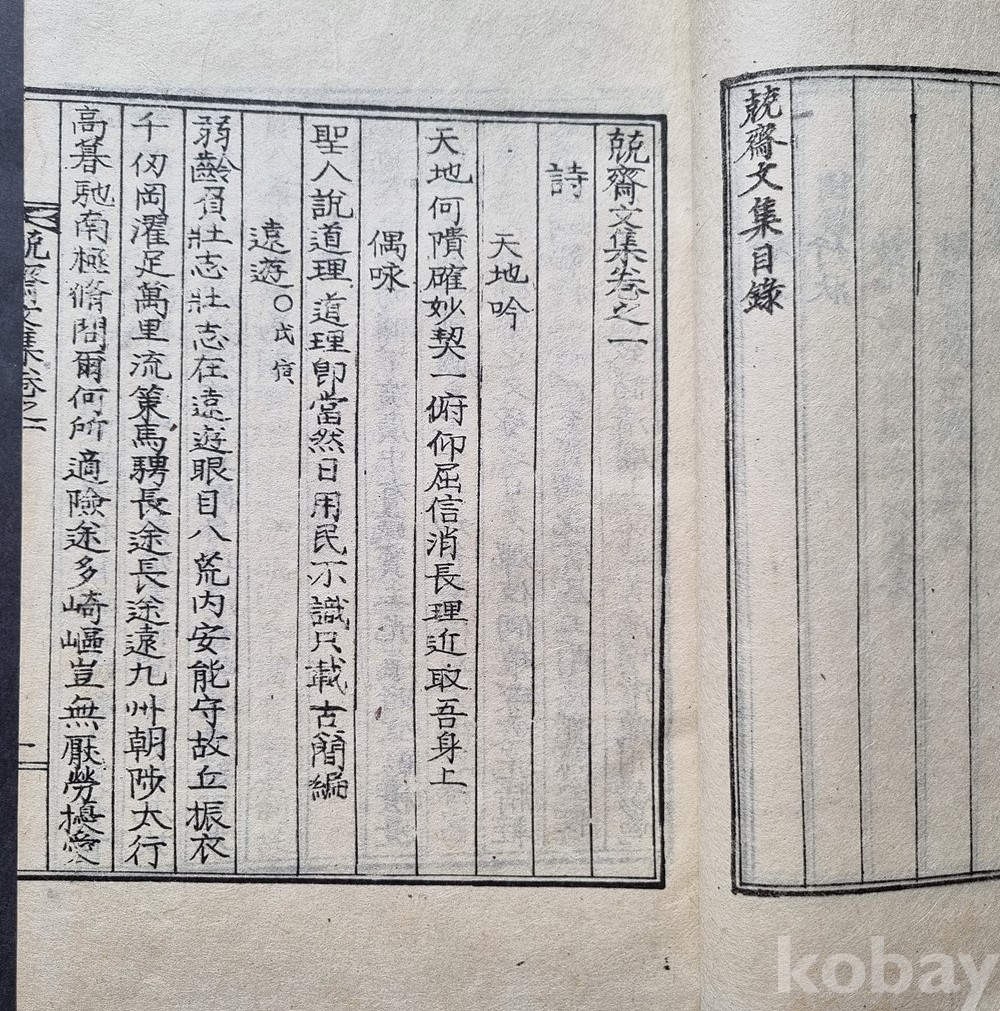 兢齋文集目錄
兢齋文集卷之一
詩
天地吟
天地何隤確妙契一俯仰屈信消長理近取吾身上
偶咏
聖人說道理道理卽當然日用民不識只載古簡編
遠遊○戊寅
弱齡負壯志壯志在遠遊眼目八荒內安能守故丘振衣
千仞岡濯足萬里流策馬騁長途長途遠九州朝陟太行
高暮馳南極脩問爾何所適險途多崎嶇豈無厭勞擾愛
兢齋文集卷之一
kobay